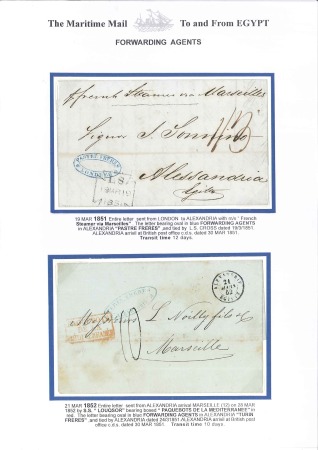 The Maritime Mail To and From EGYPT
FORWARDING AGENTS
french Steamer via Marseilles
Signor J Sonnino
Alessandria
Egitto
PASTRE FRERES
LONDRES
L.S.
19 MAR 1851 Entire letter sent from LONDON to ALEXANDRIA with m/s " French
Steamer via Marseilles" The letter bearing oval in blue FORWARDING AGENTS
in ALEXANDRIA "PASTRE FRERES" ,and tied by L.S. CROSS dated 19/3/1851.
ALEXANDRIA arriell at British post office c.d.s. dated 30 MAR 1851.
Transit time 12 days.
ALEXANDRIE
21
MARS
52
EGYPTE
Messieurs L Noilly fils &
10
Marseille
21 MAR 1852 Entire letter sent from ALEXANDRIA arrival MARSEILLE (12) on 28 MAR
1852 by S.S. " LOUQSOR" bearing boxed " PAQUEBOTS DE LA MEDITERRANEE" in
red. The letter bearing oval in blue FORWARDING AGENTS in ALEXANDRIA "TURIN
FRERES" ,and tied by ALEXANDRIA dated 24/2/1851. ALEXANDRIA arriell at British
post office c.d.s. dated 30 MAR 1851. Transit time 10 days